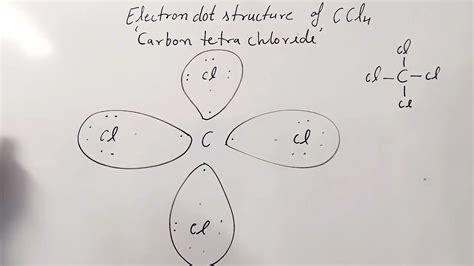 Electron dot structure of CCl4
'Carbon tetra chloride'
Cl
Cl
Cl – C – Cl
Cl
Cl C Cl
Cl